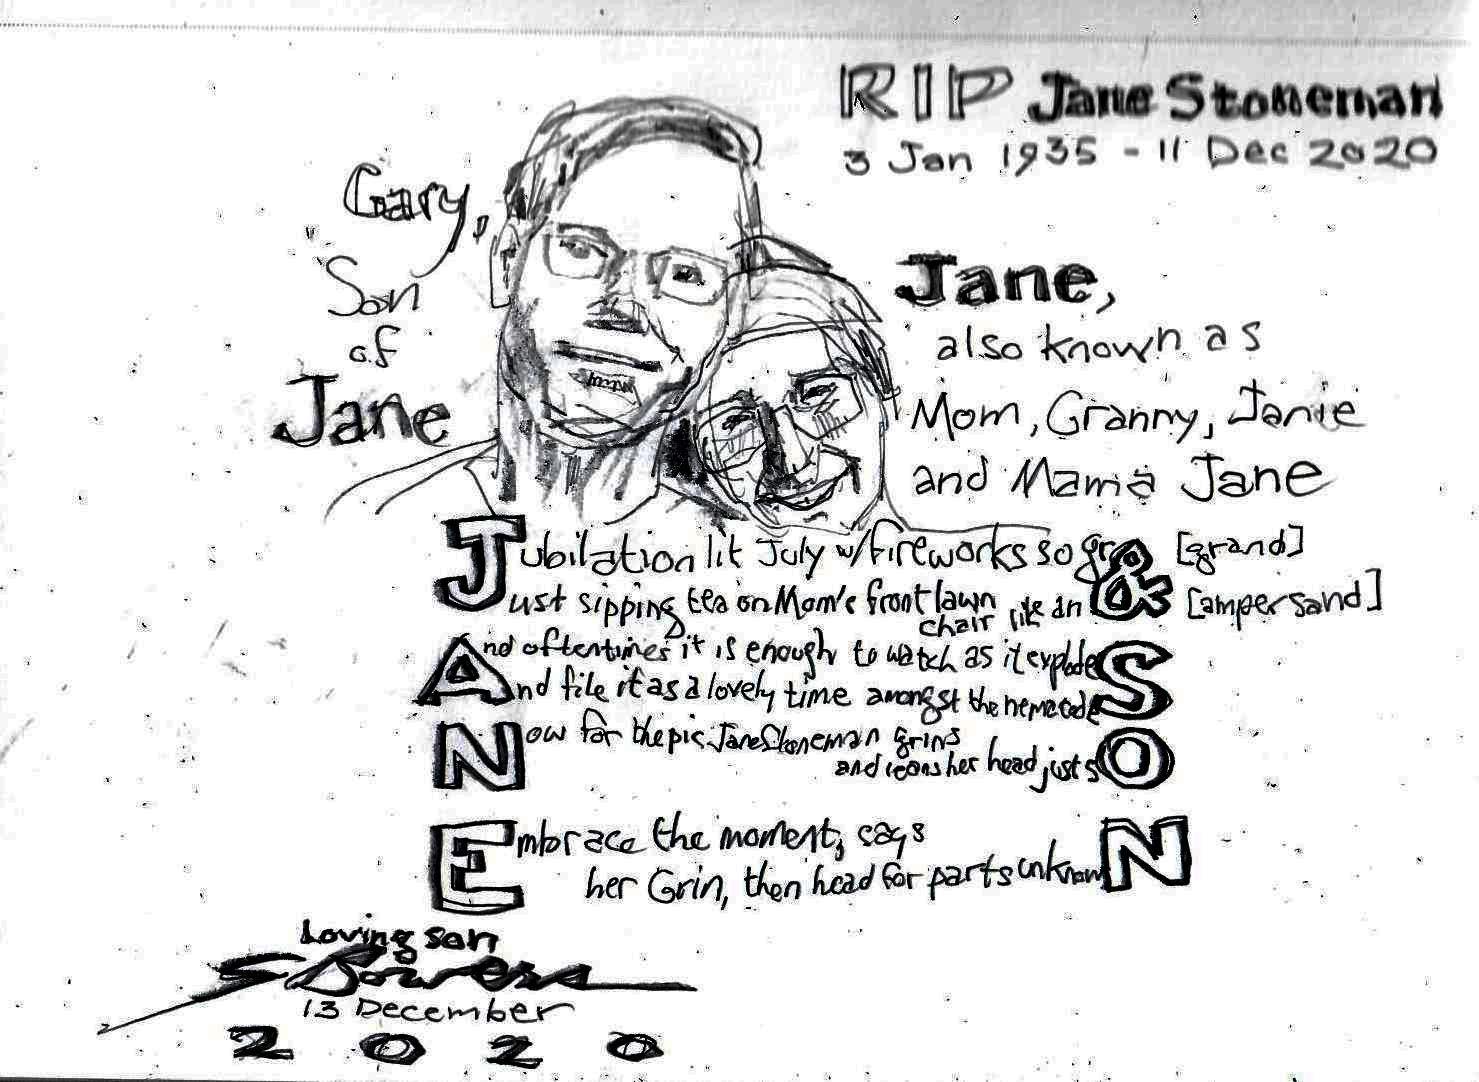 RIP Jane Stoneman
3 Jan 1935 - 11 Dec 2020
Gary,
Son
of
Jane
Jane,
also known as
Mom, Granny, Janie
and Mama Jane
Jubilation lit July w/fireworks so gr& [grand]
Just sipping tea on Mom's front lawn
chair like an & [ampersand]
And oftentimes it is enough to watch as it explodeS
And file it as a lovely time amongst the nematodeS
Now for the pic Jane Stoneman grins
and leans her head just sO
Embrace the moment, says
her Grin, then head for parts unknowN
Loving son
S Bowers
13 December
2020